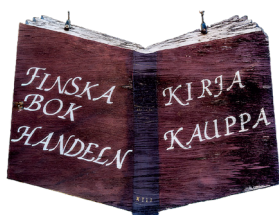 FINSKA
BOK
HANDELN
KIRJA
KAUPPA